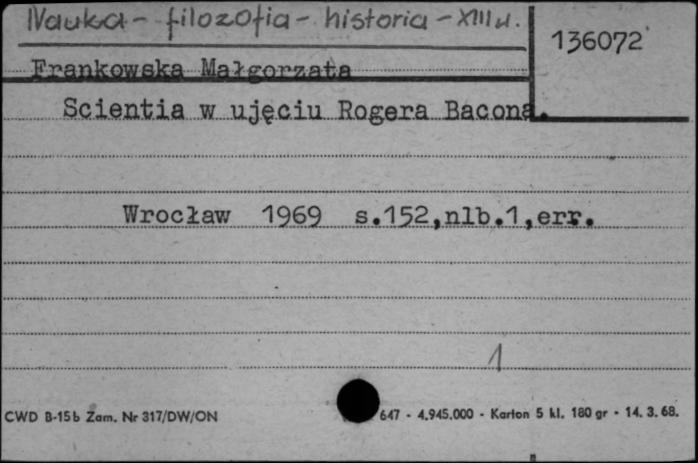 Nauka - filozofia - historia - XIII w.
136072
Frankowska Małgorzata
Scientia w ujęciu Rogera Bacona.
Wrocław 1969 s.152,nlb.1,err.
1
CWD B-15b Zam. Nr 317/DW/ON
647 - 4.945.000 - Karton 5 kl. 180 gr - 14. 3. 68.